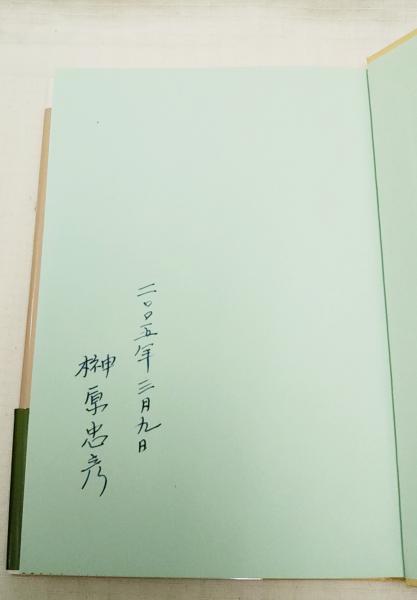 二〇〇五年三月九日
榊原忠彦